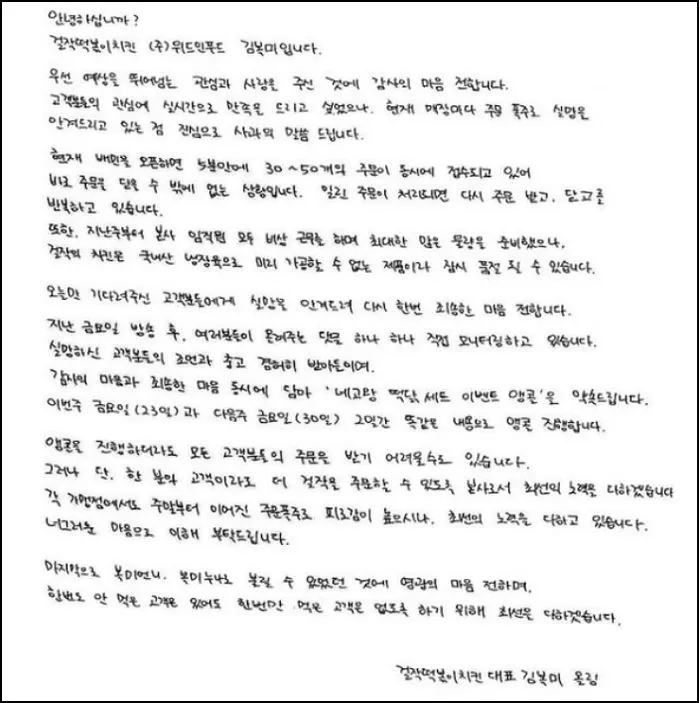 안녕하십니까?
걸작떡볶이치킨 (주)위드인푸드 김복미입니다.
우선 예상을 뛰어넘는 관심과 사랑을 주신 것에 감사의 마음 전합니다.
고객분들의 관심에 실시간으로 만족을 드리고 싶었으나, 현재 매장마다 주문 폭주로 실망을
안겨드리고 있는 점 진심으로 사과의 말씀 드립니다.
현재 배민을 오픈하면 5분안에 30~50개의 주문이 동시에 접수되고 있어
바로 주문을 닫을 수 밖에 없는 상황입니다. 밀린 주문이 처리되면 다시 주문 받고, 닫고를
반복하고 있습니다.
또한, 지난주부터 본사 임직원 모두 비상 근무를 하며 최대한 많은 물량을 준비했으나,
걸작의 치킨은 국내산 냉장육으로 미리 가공할 수 없는 제품이라 잠시 품절 될 수 있습니다.
오늘만 기다려주신 고객분들에게 실망을 안겨드려 다시 한번 죄송한 마음 전합니다.
지난 금요일 방송 후, 여러분들이 올려주는 댓글 하나 하나 직접 모니터링하고 있습니다.
실망하신 고객분들의 조언과 충고 겸허히 받아들이며,
감사의 마음과 죄송한 마음 동시에 담아 '네고왕 떡닭세트 이벤트 앵콜'을 약속드립니다.
이번주 금요일(23일)과 다음주 금요일(30일) 2일간 똑같은 내용으로 앵콜 진행합니다.
앵콜을 진행하더라도 모든 고객분들의 주문을 받기 어려울수도 있습니다.
그러나 단, 한 분의 고객이라도 더 걸작을 주문할 수 있도록 본사로서 최선의 노력을 다하겠습니다
각 가맹점에서도 주말부터 이어진 주문폭주로 피로감이 높으시나, 최선의 노력을 다하고 있습니다.
너그러운 마음으로 이해 부탁드립니다.
마지막으로 복미언니, 복미누나로 불릴 수 있었던 것에 영광의 마음 전하며,
한번도 안 먹은 고객은 있어도 한번만 먹은 고객은 없도록 하기 위해 최선을 다하겠습니다.
걸작떡볶이치킨 대표 김복미 올림